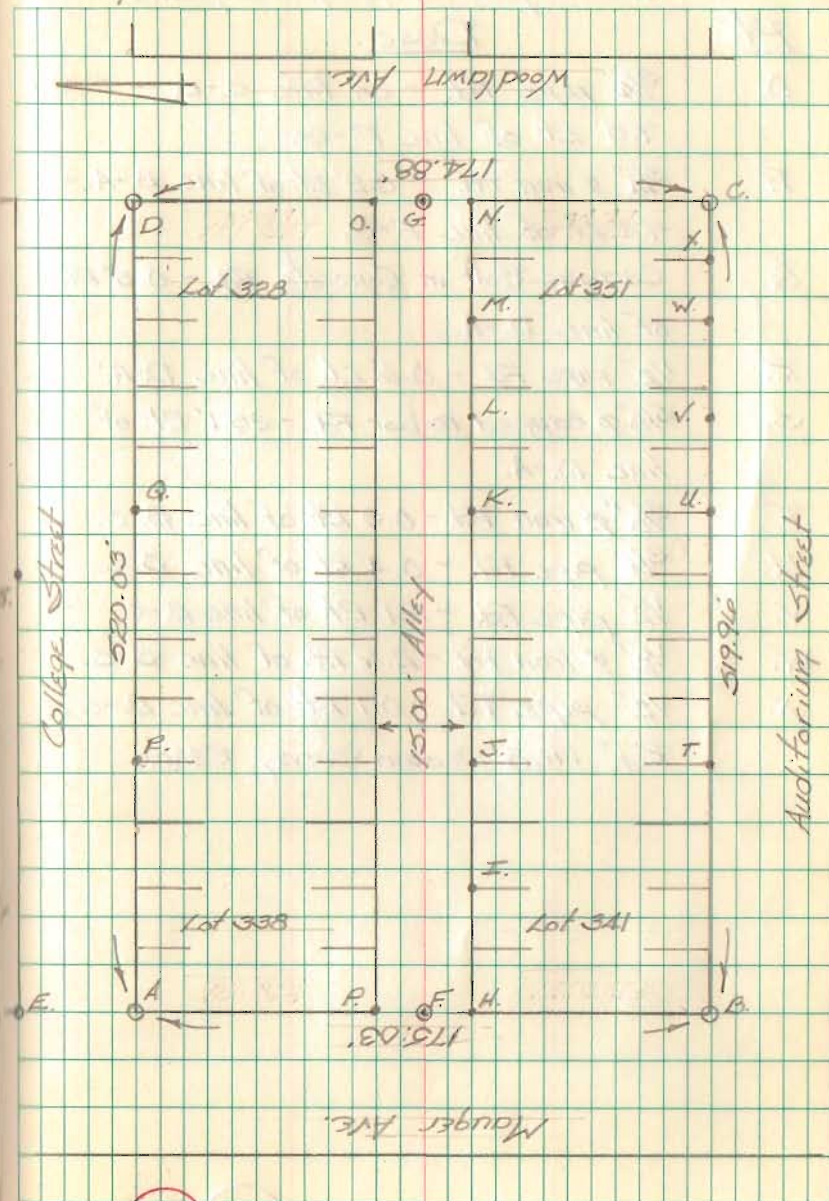 Woodlawn Ave.
174.88'
D. O. G. N. C.
X.
Lot 328 Lot 351
M. W.
L. V.
Q. K. U.
College Street
520.03'
15.00' Alley
519.96'
Auditorium Street
R. J. T.
I.
Lot 338 Lot 341
E. A P. F. H. B.
175.03'
Mauger Ave.